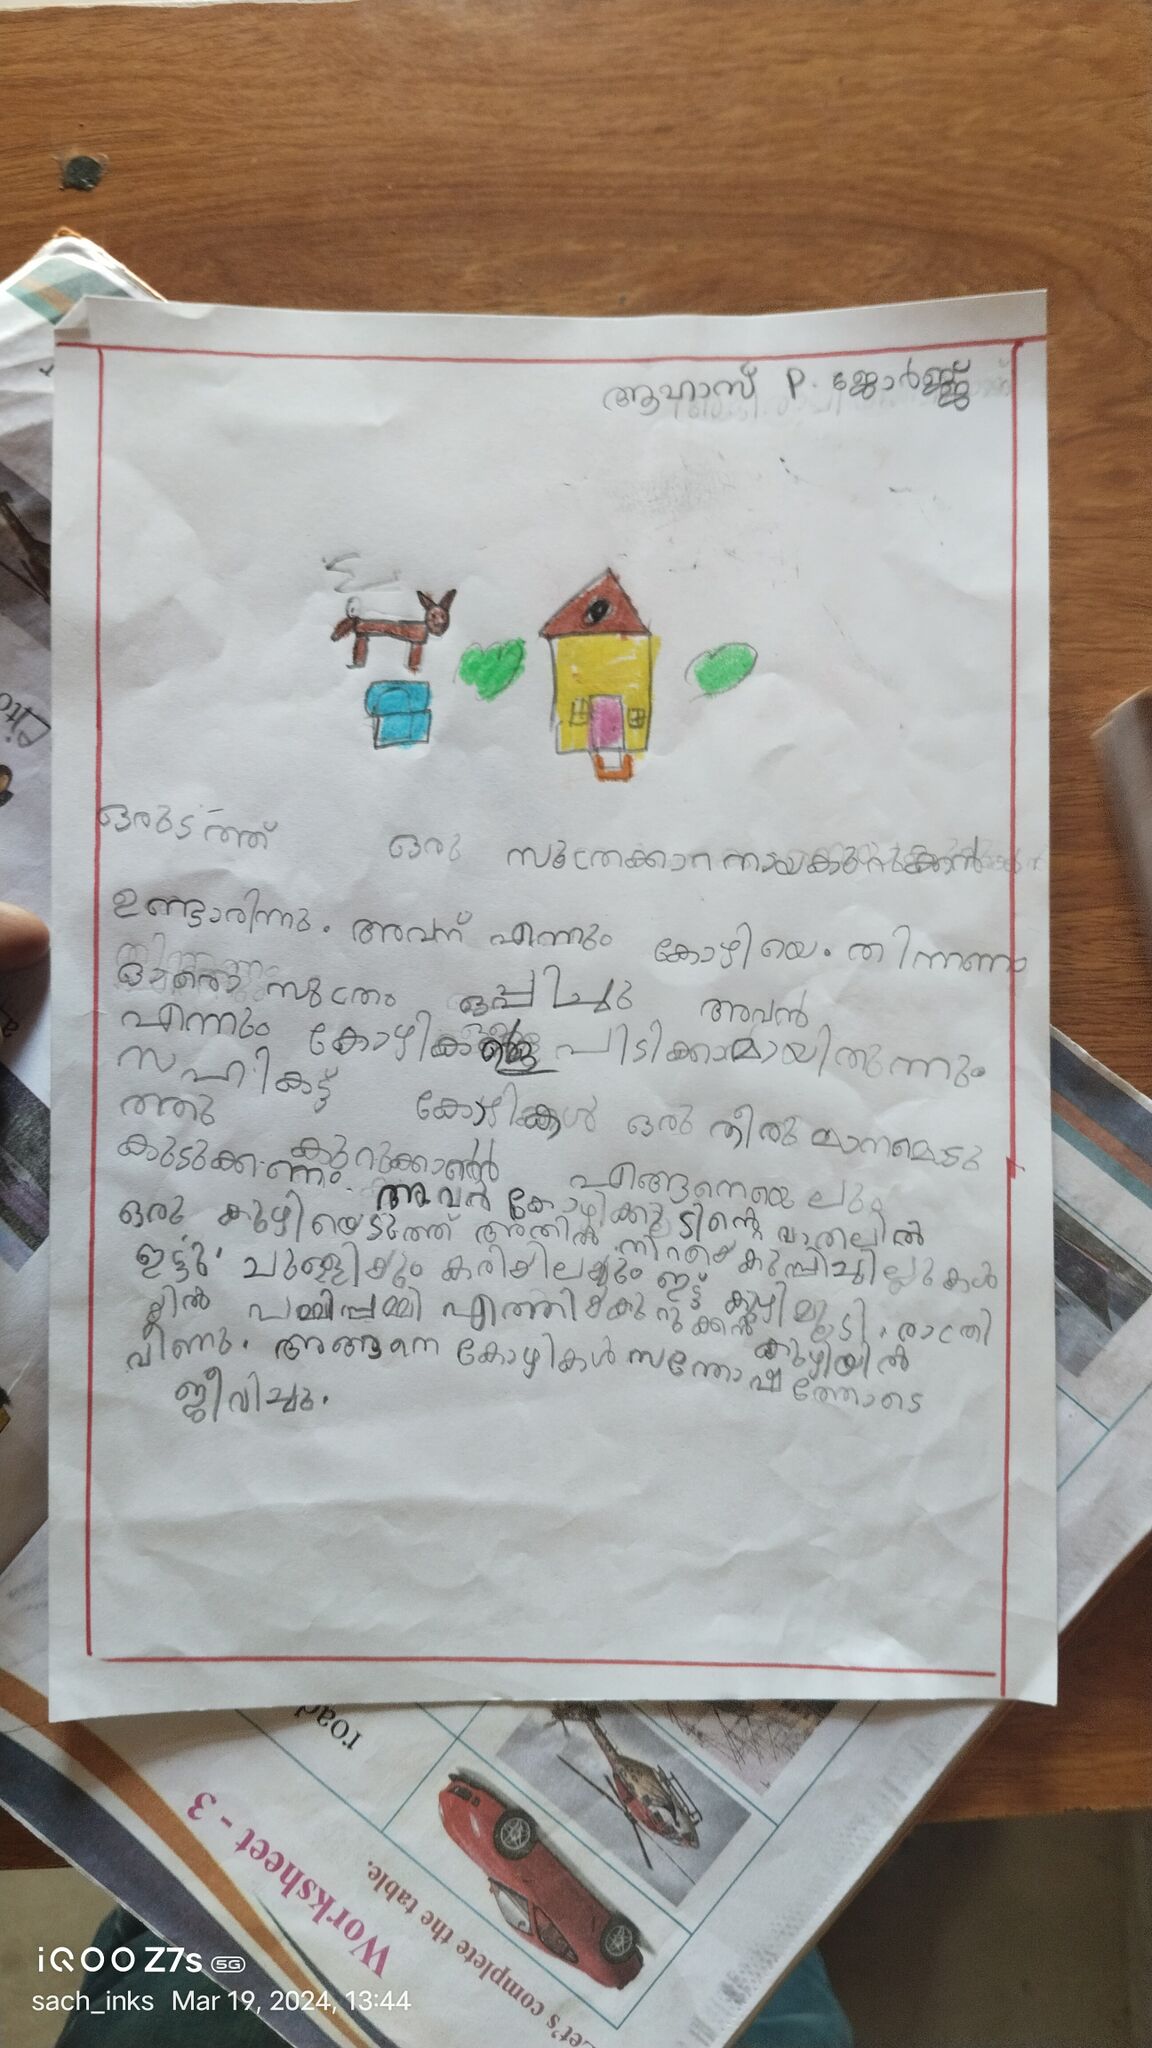 ആഹാസ് P. ജോർജ്ജ്
ഒരുടത്ത് ഒരു സൂത്രക്കാരനായകുറുക്കൻ
ഉണ്ടാരിന്നു. അവന് എന്നും കോഴിയെ തിന്നണം
ഒരു സുത്രം ഒപ്പിച്ചു അവൻ
എന്നും കോഴികളെ പിടിക്കാമായിരുന്നും
സഹികട്ട്
ത്തു കോഴികൾ ഒരു തീരുമാനമെടു
കുറുക്കാൻ എങ്ങനെയെലും
കുടുക്കണം. അവൻ കോഴിക്കൂടിന്റെ വാതലിൽ
ഒരു കുഴിയെടുത്ത് അതിൽ നിറച്ചെ കുപ്പിച്ചില്ലുകൾ
ഇട്ടു. ചുള്ളിയും കരിയിലയും ഇട്ട് കുഴി മൂടി. രാത്രി
യിൽ പമ്മിപ്പമ്മി എത്തിയകുറുക്കൻ കുഴിയിൽ
വീണു. അങ്ങനെ കോഴികൾ സന്തോഷത്തോടെ
ജീവിച്ചു.
road
Worksheet - 3
Let's complete the table.
iQOO Z7s 5G
sach_inks Mar 19, 2024, 13:44